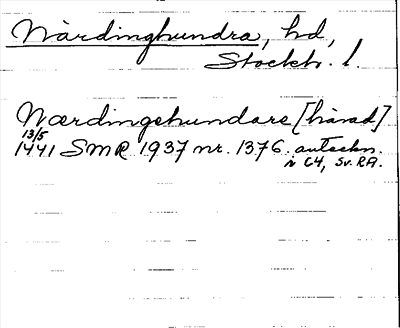 Närdinghundra, hd,
Stockh. l.
Nærdingehundare [härad]
13/5
1441 SMR 1937 nr. 1376. anteckn.
i C4, Sv. RA.